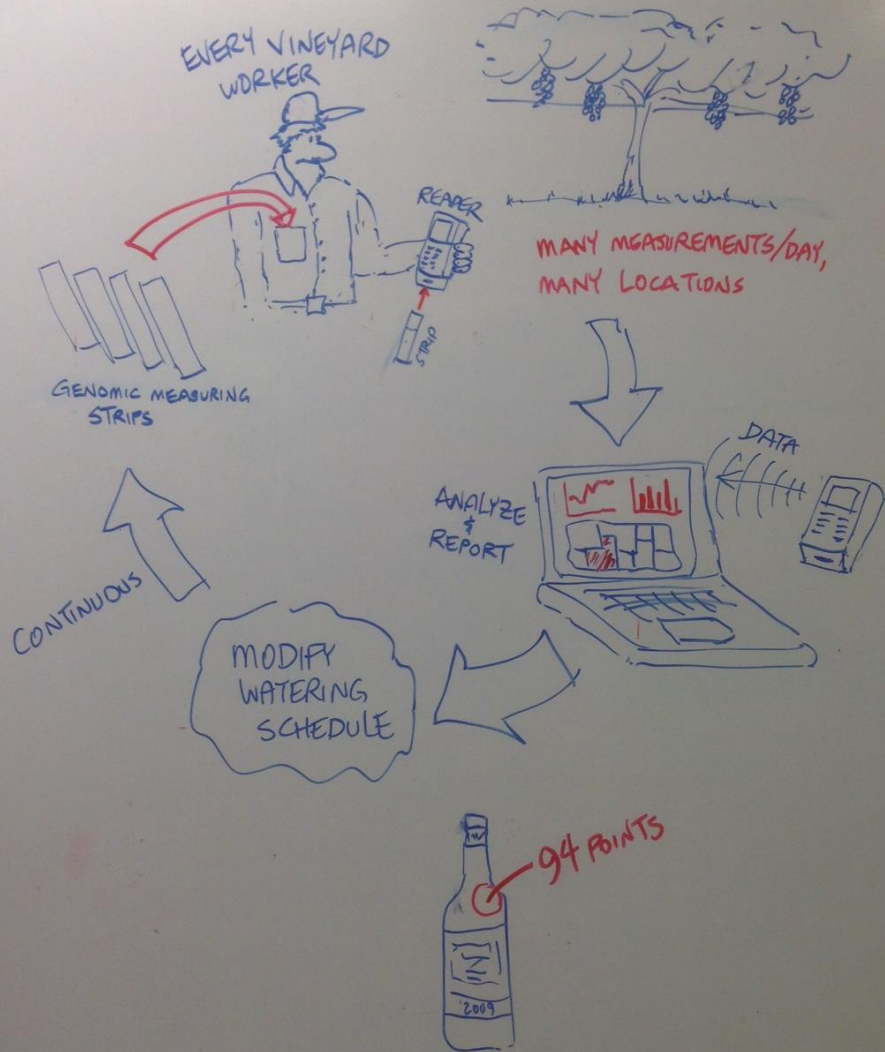 EVERY VINEYARD
WORKER
READER
STRIP
GENOMIC MEASURING
STRIPS
MANY MEASUREMENTS/DAY,
MANY LOCATIONS
DATA
ANALYZE
&
REPORT
MODIFY
WATERING
SCHEDULE
CONTINUOUS
94 POINTS
2009